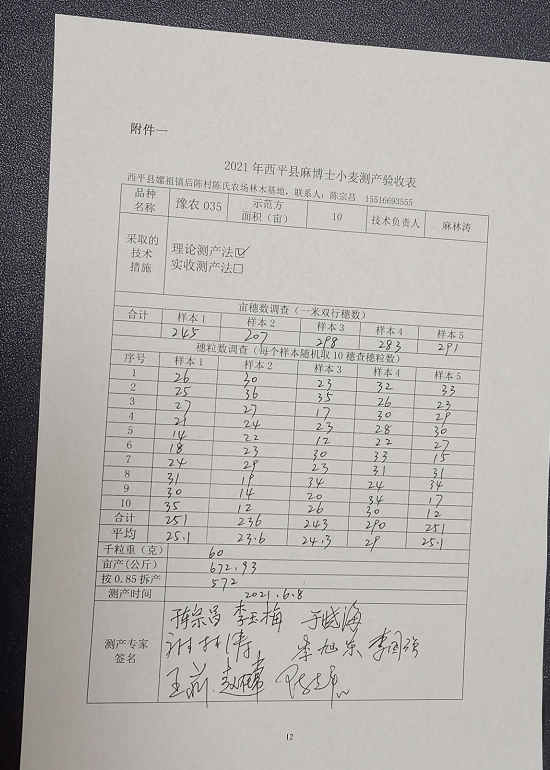 附件一
2021年西平县麻博士小麦测产验收表
西平县嫘祖镇后陈村陈氏农场林木基地，联系人：陈宗昌 15516693555
品种名称 豫农035 示范方面积（亩） 10 技术负责人 麻林涛
采取的技术措施 理论测产法☑
实收测产法□
亩穗数调查（一米双行穗数）
合计 样本1 样本2 样本3 样本4 样本5
245 207 298 283 291
穗粒数调查（每个样本随机取10穗查穗粒数）
序号 样本1 样本2 样本3 样本4 样本5
1 26 30 23 32 33
2 25 36 35 26 23
3 27 27 17 30 29
4 21 24 23 28 30
5 14 22 12 22 27
6 18 23 30 33 15
7 24 29 23 31 31
8 31 19 34 24 34
9 30 14 20 34 17
10 35 12 26 30 12
合计 251 236 243 290 251
平均 25.1 23.6 24.3 29 25.1
千粒重（克） 60
亩产(公斤) 672.93
按0.85拆产 572
测产时间 2021.6.8
测产专家签名
陈宗昌 李玉梅 于晓海
李旭东 李国强
12